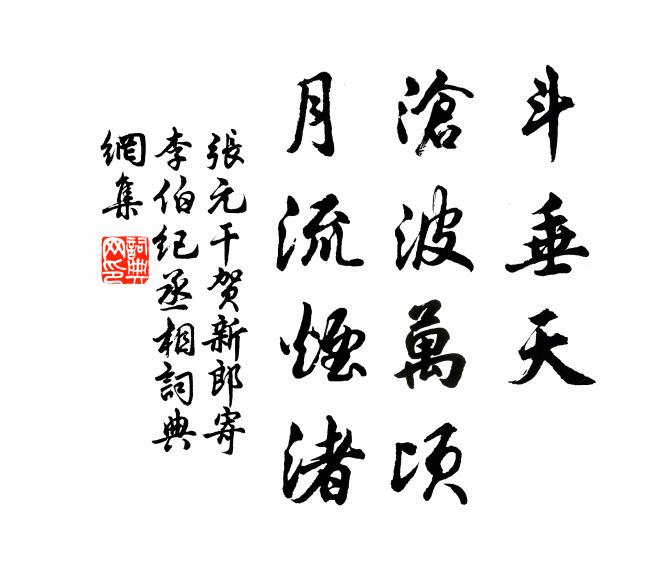 斗垂天
滄波萬頃
月流煙渚
張元干賀新郎寄
李伯紀丞相詞典
網集
詞典網印